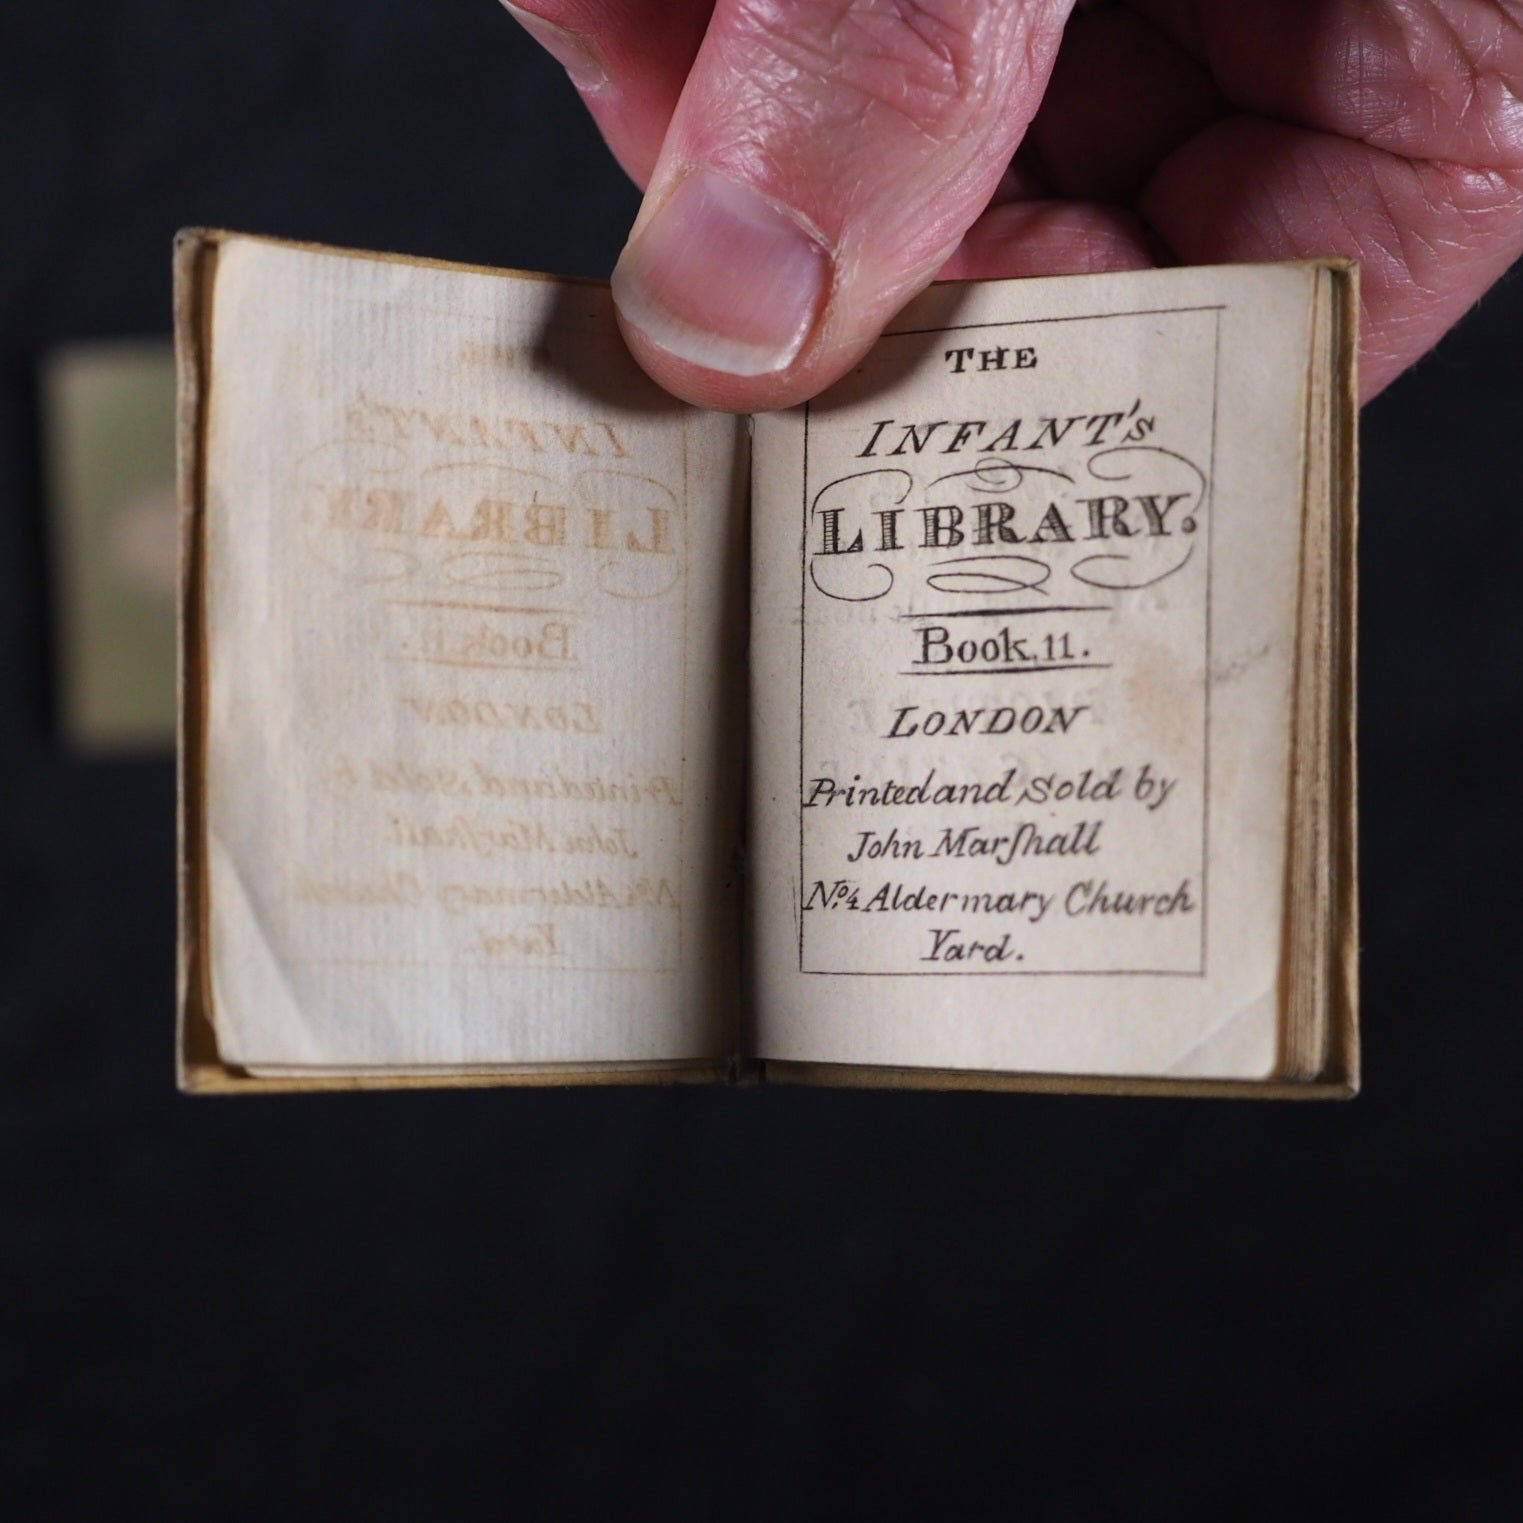 THE
INFANT's
LIBRARY.
Book.11.
LONDON
Printed and Sold by
John Marſhall
No. 4 Aldermary Church
Yard.